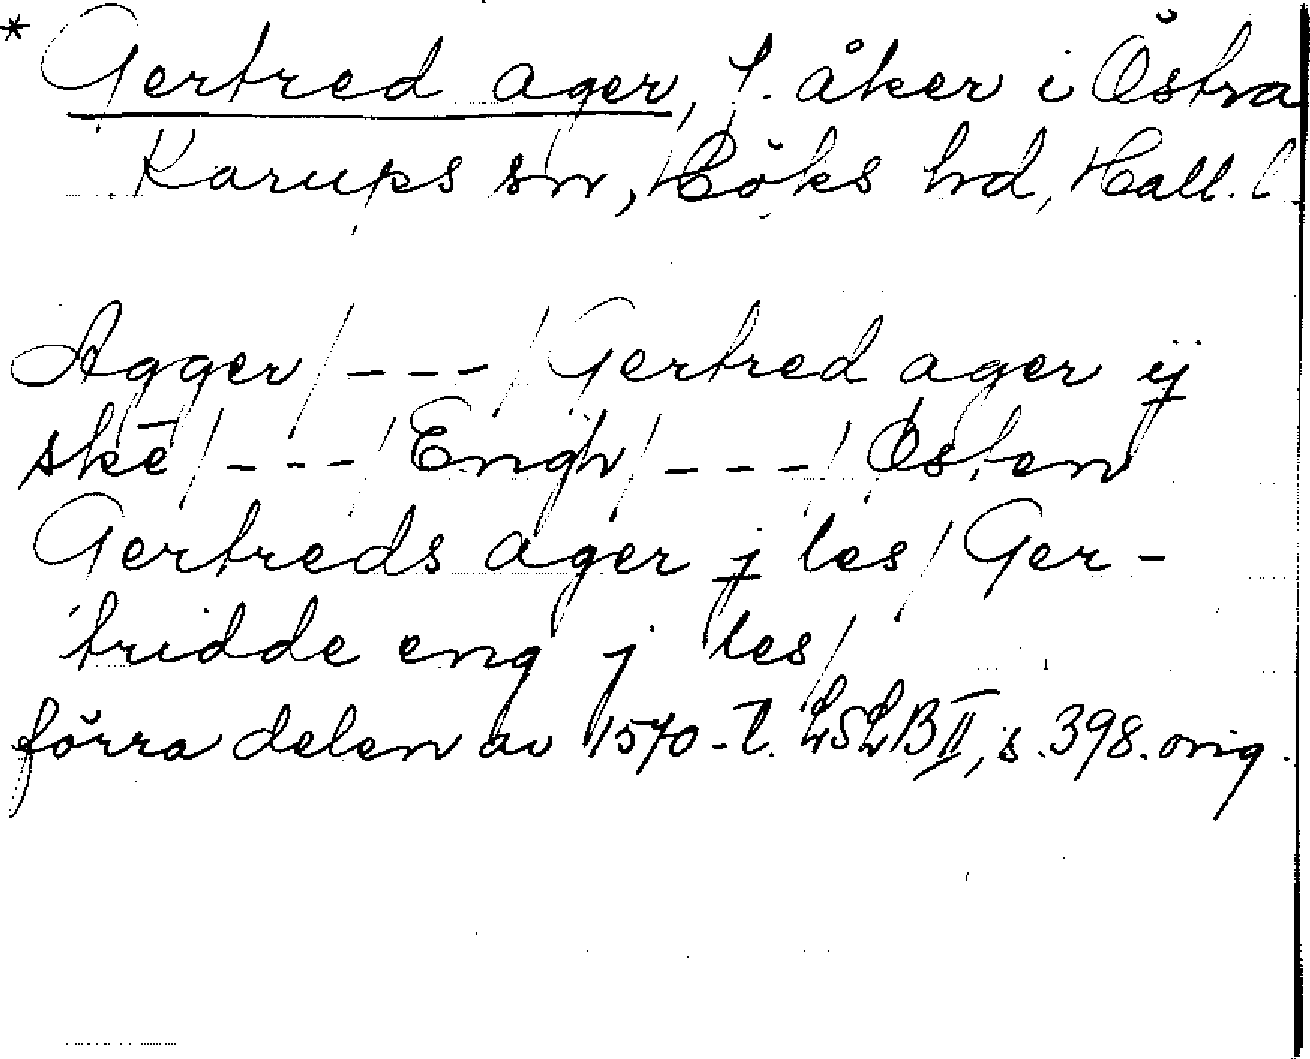 * Gertred ager, f. åker i Östra
Karups sn, Höks hd, Hall. l.
Agger/---/Gertred ager ij
skē/---/Engh/---/Östen
Gertreds ager j les/Ger-
tridde eng j les/
förra delen av 1570-t. LSLB II, s. 398. orig.